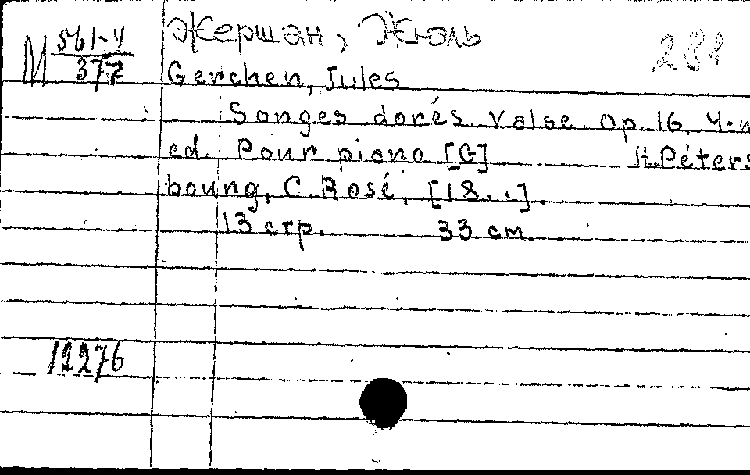 M 561-4
377
Жершан, Жюль
281
Gerchen, Jules
Songes dorés. Valse Op. 16. 4-
ed. Pour piano [G]  St. Péters
bourg, C. Rosé, [18..].
13 стр.  33 cm
12276